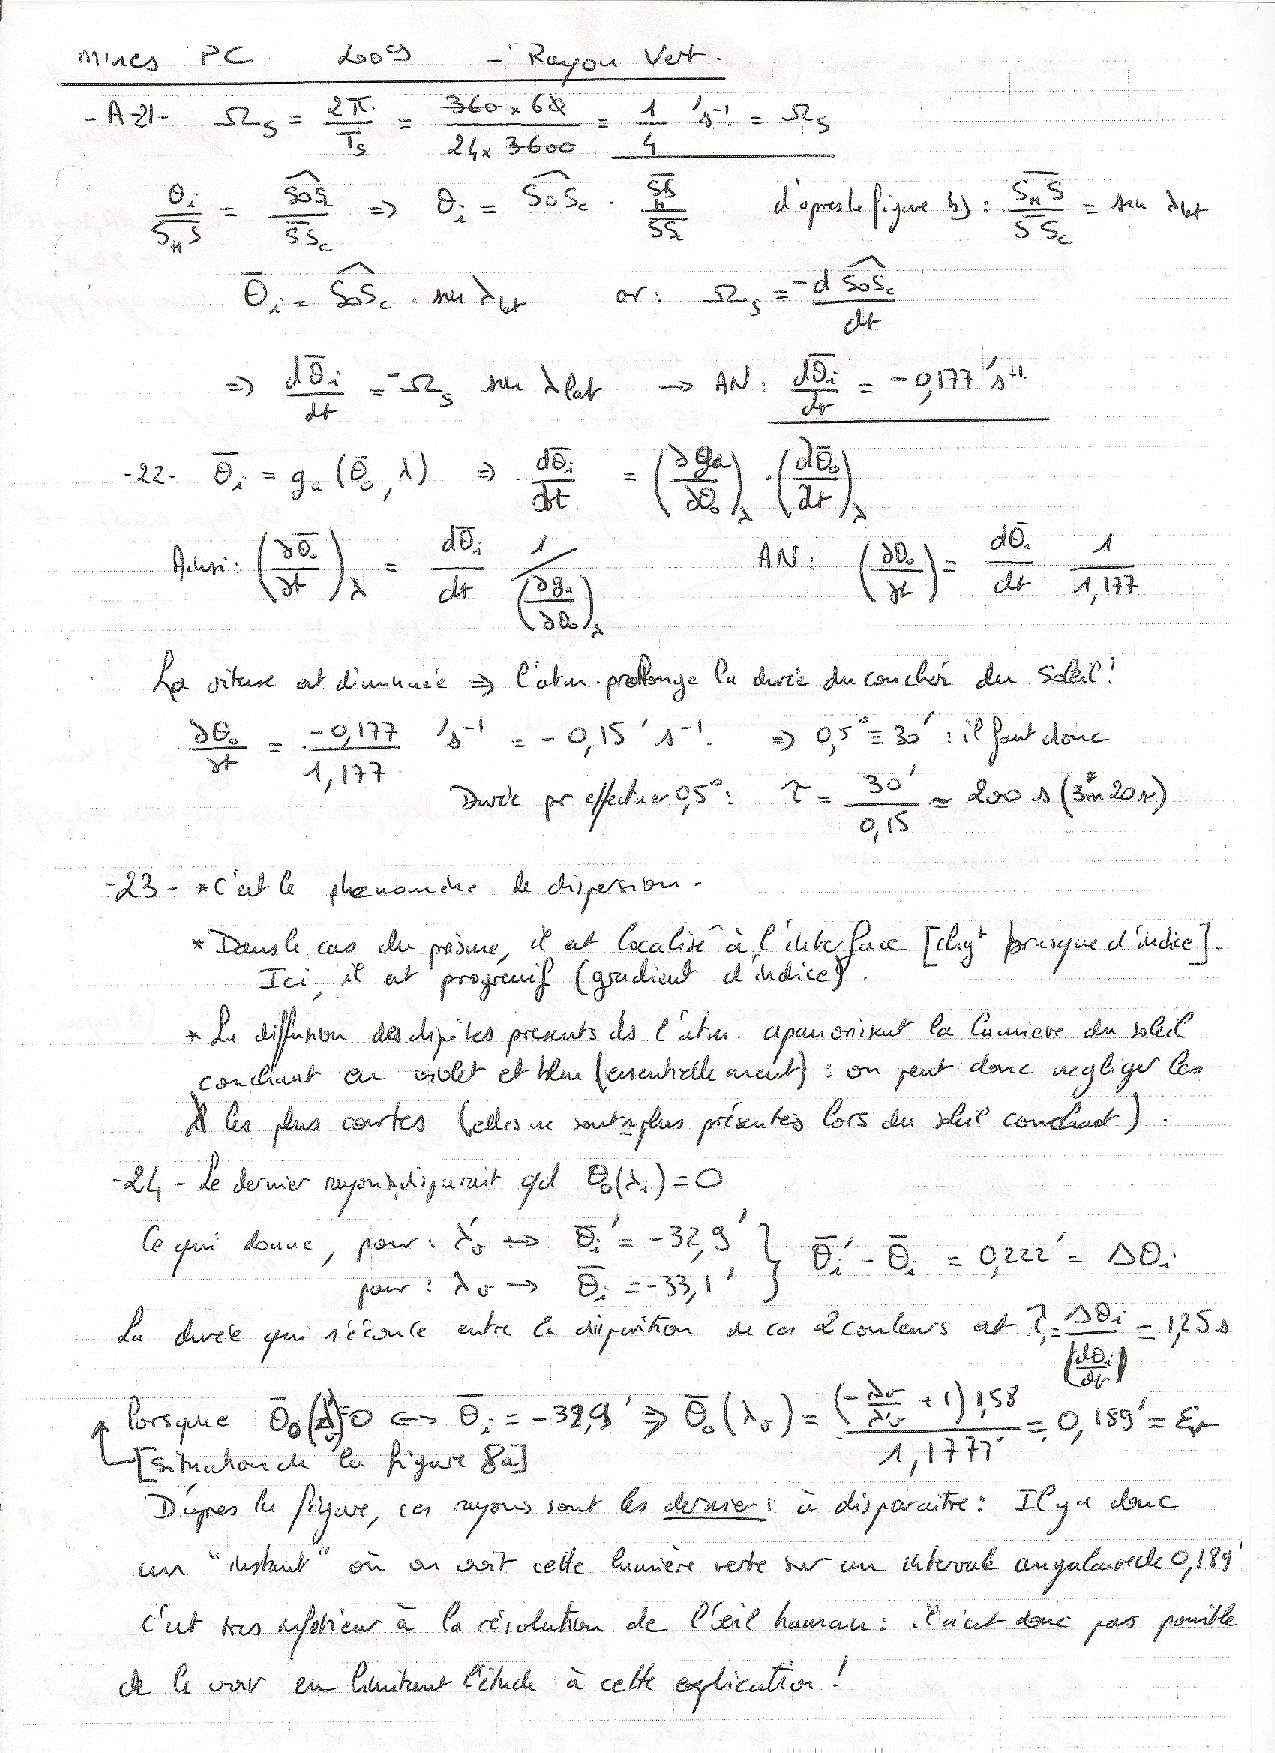 Mines PC 2009 - Rayon Vert.
-A-21- Ω_S = 2π/T_S = 360 × 60/24 × 3600 = 1/4 's⁻¹ = Ω_S
θ_i/S_H S = SOS_c/SS_c ⇒ θ_i = SOS_c · S_H S/SS_c d'après le figure b) : S_H S/SS_c = sin λ_lat
θ_i = SOS_c · sin λ_lat or : Ω_S = -d SOS_c/dt
⇒ dθ_i/dt = -Ω_S sin λ_lat → AN : dθ_i/dt = -0,177 's⁻¹
-22- θ_i = g_a (θ_0, λ) ⇒ dθ_i/dt = (∂g_a/∂θ_0)_λ · (∂θ_0/∂t)_λ
Ainsi : (∂θ_0/∂t)_λ = dθ_i/dt 1/(∂g_a/∂θ_0)_λ AN : (∂θ_0/∂t) = dθ_i/dt 1/1,177
La vitesse est diminuée ⇒ l'atm. prolonge la durée du coucher du soleil !
∂θ_0/∂t = -0,177/1,177 's⁻¹ = -0,15 's⁻¹. ⇒ 0,5° = 30' : il faut donc
Durée pr effectuer 0,5° : τ = 30'/0,15 ≈ 200 s (3mn 20s)
-23- * C'est le phénomène de dispersion.
* Dans le cas du prisme, il est localisé à l'interface [chgt brusque d'indice].
Ici, il est progressif (gradient d'indice).
* La diffusion des dipôles présents ds l'atm. apauvrisent la lumière du soleil
couchant en violet et bleu (essentiellement) : on peut donc négliger les
λ les plus courtes (elles ne sont plus présentes lors du soleil couchant).
-24- Le dernier rayon disparait qd θ_0(λ_i) = 0
Ce qui donne, pour : λ'_v ↔ θ_i' = -32,9' } θ_i' - θ_i = 0,222' = Δθ_i
pour : λ_v → θ_i = -33,1'
La durée qui s'écoule entre la disparition de ces 2 couleurs est τ = Δθ_i/(dθ_i/dt) = 1,25 s
Lorsque θ_0(λ'_v) = 0 ↔ θ_i = -32,9' ⇒ θ_0(λ_v) = (-λ_v/λ'_v + 1) 1,58/1,1777 = 0,189' = ε_r
[situation de la figure 8a]
D'après la figure, ces rayons sont les derniers à disparaitre : Il y a donc
un "instant" où on voit cette lumière verte sur un intervale angulaire de 0,189'
c'est très inférieur à la résolution de l'œil humain : il n'est donc pas possible
de le voir en limitant l'étude à cette explication !